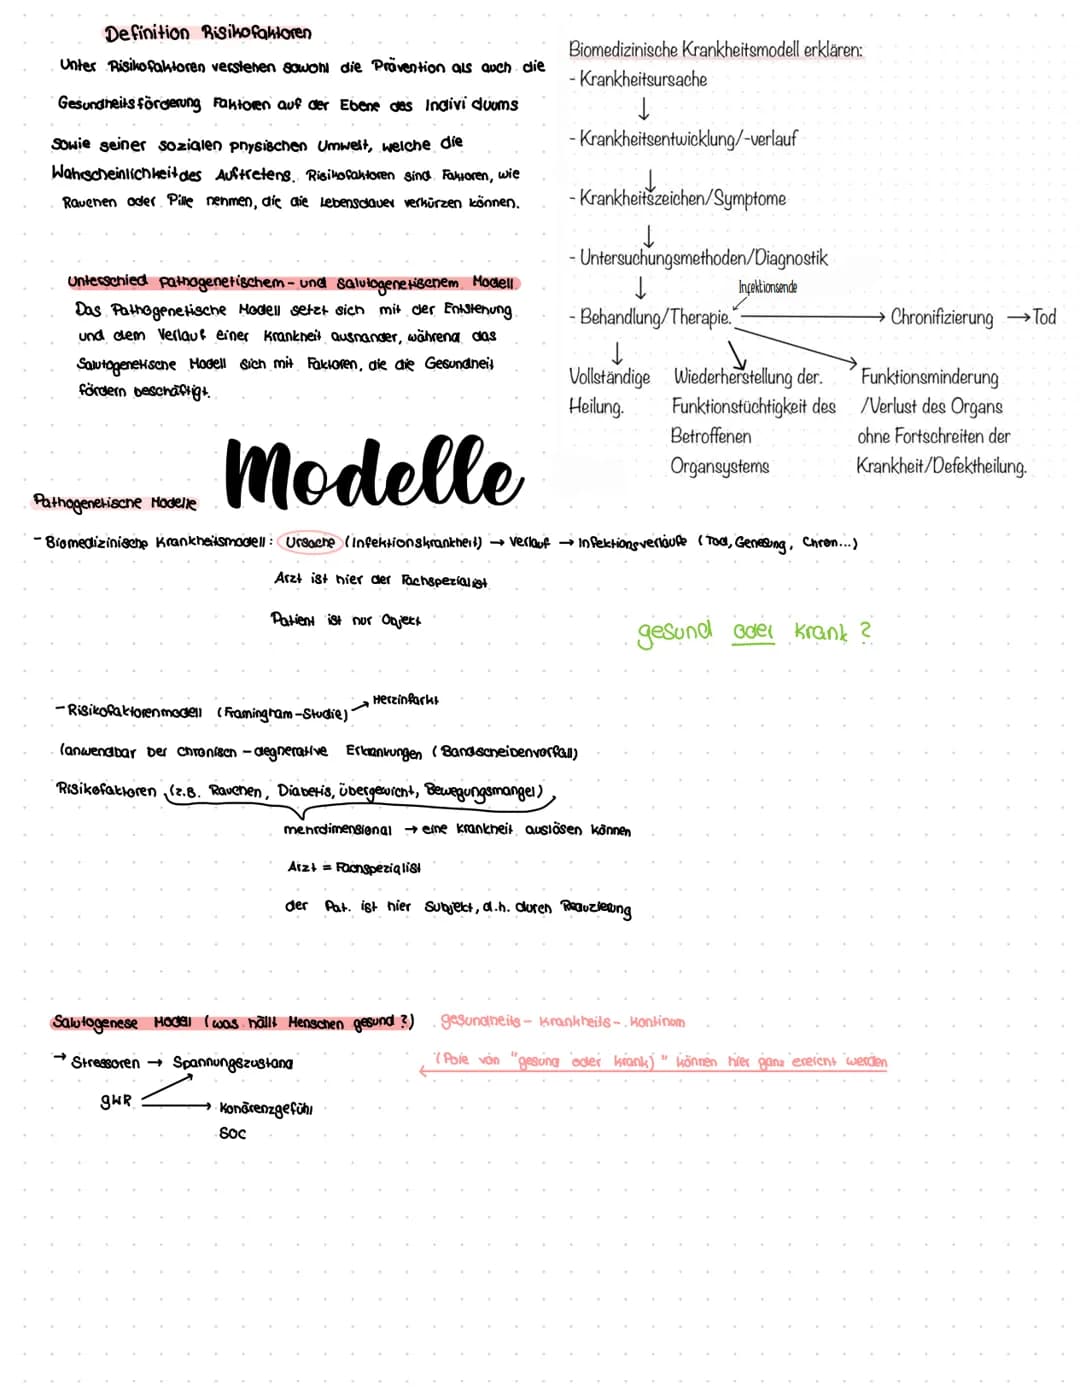 Definition Risikofaktoren
Unter Risikofaktoren verstehen sowohl die Prävention als auch die
Gesundheitsförderung Faktoren auf der Ebene des Individuums
sowie seiner sozialen physischen Umwelt, welche die
Wahrscheinlichkeit des Auftretens. Risikofaktoren sind Faktoren, wie
Rauchen oder Pille nehmen, die die Lebensdauer verkürzen können.
Unterschied pathogenetischem- und salutogenetischem Modell
Das Pathogenetische Modell setzt sich mit der Entstehung
und dem Verlauf einer Krankheit ausnander, während das
Salutogenetische Modell sich mit Faktoren, die die Gesundheit
fördern beschäftigt.
Biomedizinische Krankheitsmodell erklären:
- Krankheitsursache
↓
- Krankheitsentwicklung/-verlauf
↓
- Krankheitszeichen/Symptome
↓
- Untersuchungsmethoden/Diagnostik
↓ Infektionsende
- Behandlung/Therapie. → Chronifizierung → Tod
Vollständige
Heilung.
Wiederherstellung der.
Funktionstüchtigkeit des
Betroffenen
Organsystems
Funktionsminderung
/Verlust des Organs
ohne Fortschreiten der
Krankheit/Defektheilung.
Modelle
Pathogenetische Modelle
- Biomedizinische Krankheitsmodell: Ursache (Infektionskrankheit) → Verlauf → Infektionsverläufe (Tod, Genesung, Chron...)
Arzt ist hier der Fachspezialist
Patient ist nur Object
gesund oder krank?
- Risikofaktorenmodell (Framingham-Studie) → Herzinfarkt
(anwendbar bei chronisch-degnerative Erkrankungen (Bandscheibenvorfall)
Risikofaktoren (z.B. Rauchen, Diabetis, übergewicht, Bewegungsmangel)
mehrdimensional → eine Krankheit auslösen können
Arzt = Fachspezialist
der Pat. ist hier Subjekt, d.h. durch Reduzierung
Salutogenese Modell (was hällt Menschen gesund?) gesundheits-Krankheits-Kontinom
→ Stressoren → Spannungszustand
(Pole von "gesung oder krank)" können hier ganz ereicht werden
gWR → Kohärenzgefühl
SOC